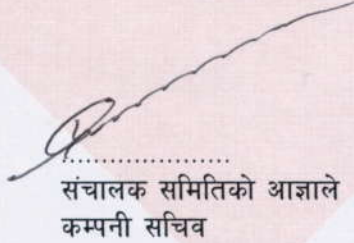 ....................
संचालक समितिको आज्ञाले
कम्पनी सचिव